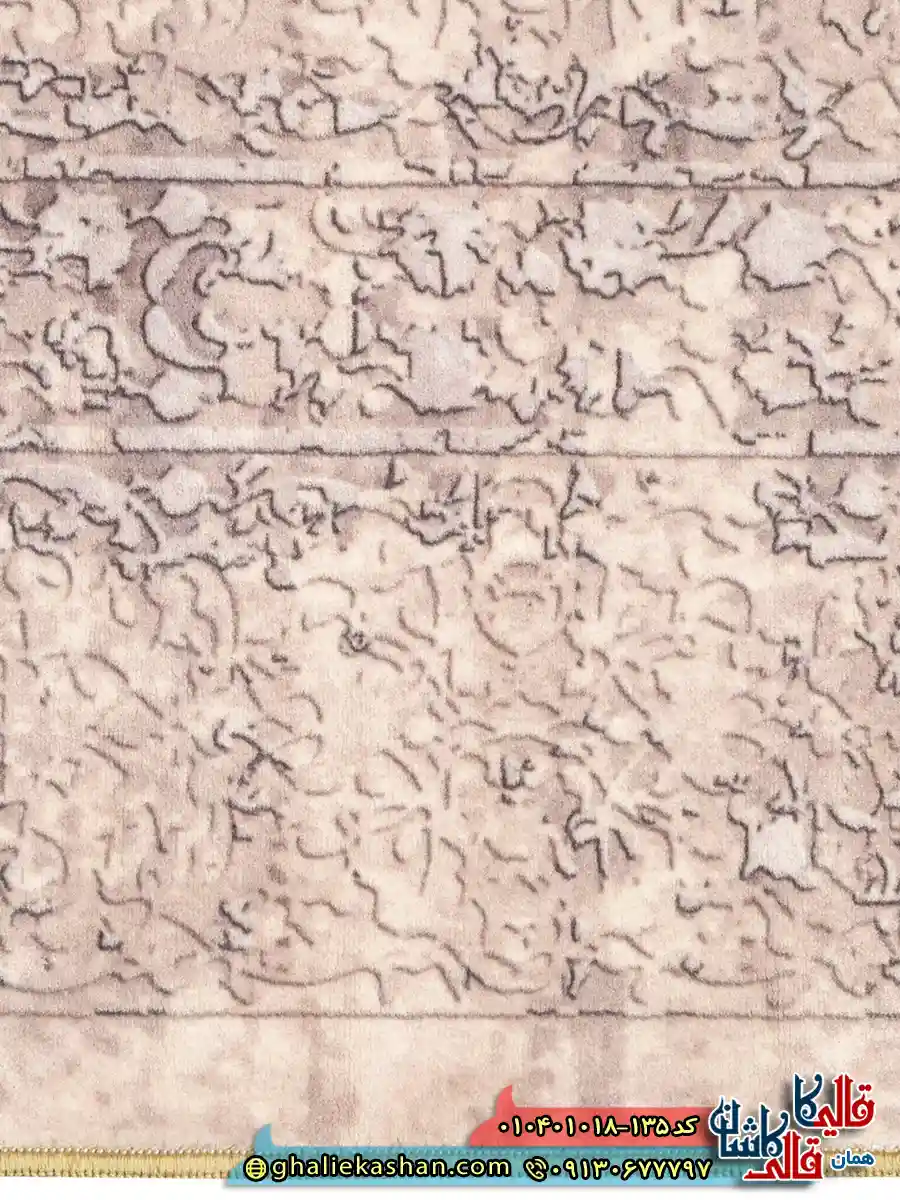 کد ۱۳۵-۰۱۰۴۰۱۰۱۸
ghaliekashan.com ۰۹۱۳۰۶۷۷۷۹۷
قالی کاشانه
همان قالی کاشانه